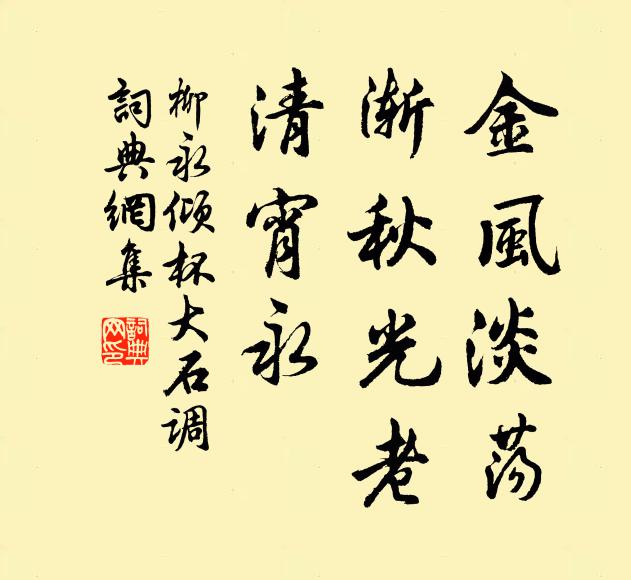 金風淡荡
漸秋光老
清宵永
柳永傾杯大石调
詞典網集
詞典网印